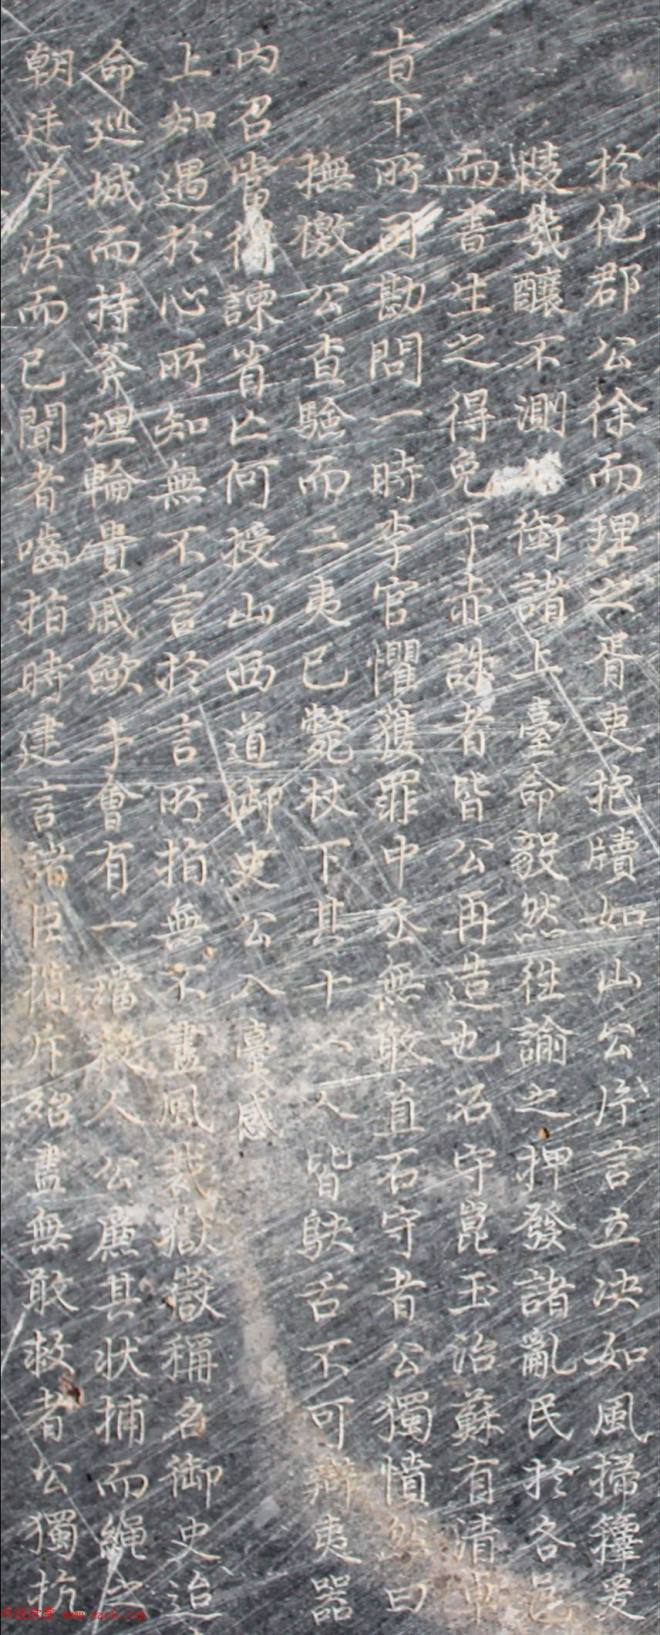 於他郡公徐而理之胥吏抱牘如山公片言立决如風掃籜爰
幾釀不測 銜諸上臺命毅然往諭之押發諸亂民於各邑
而書生之得免于赤誅者皆公再造也石守崑玉治蘇有清
旨下所司勘問一時李官懼獲罪中丞無敢直石守者公獨憤然曰
撫檄公查驗而二夷已斃杖下其十八人皆鴃舌不可辯夷器
内召當得諫省亡何授山西道御史公入臺感
上知遇於心所知無不言於言所指無不盡風裁獄嶽稱名御史迨
命巡城而持斧埋輪貴戚歛手會有一璫殺人公廉其状捕而繩之
朝廷守法而已聞者嚙指時建言諸臣擯斥殆盡無敢救者公獨抗